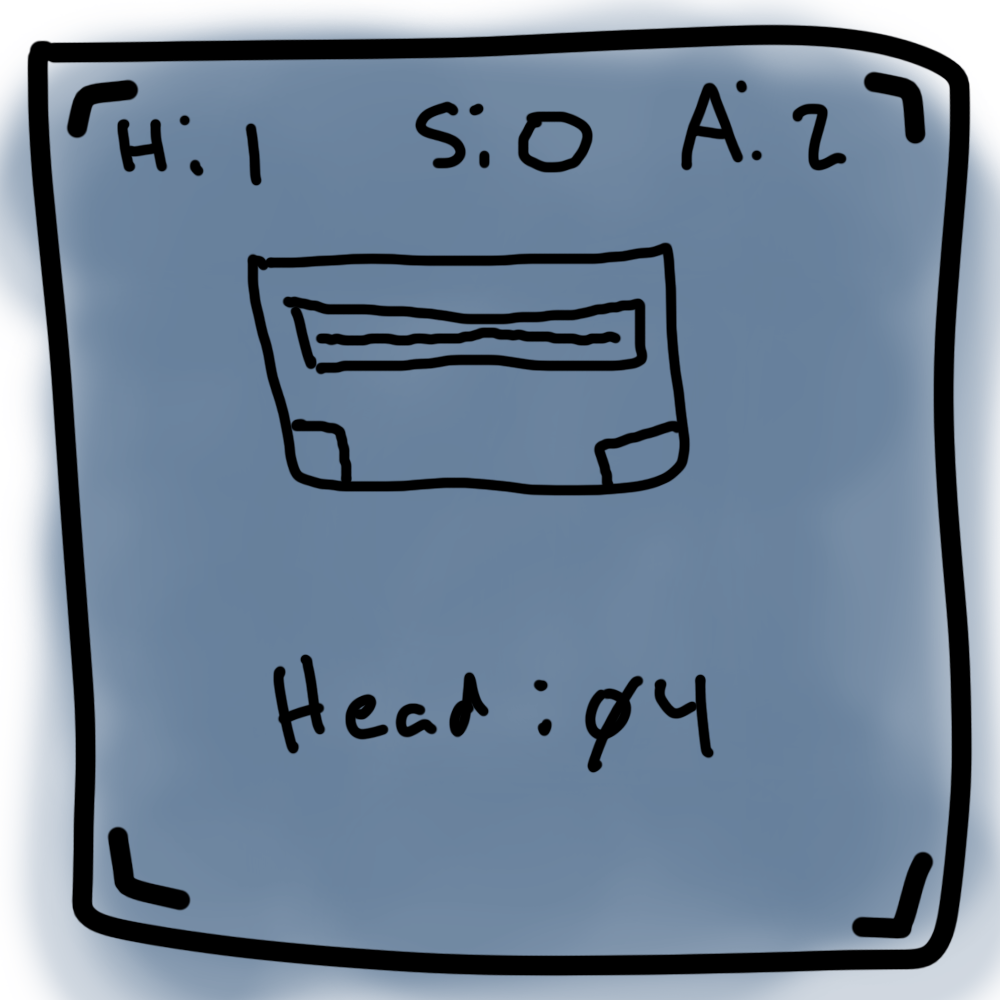 H: 1 S: 0 A: 2
Head: 04